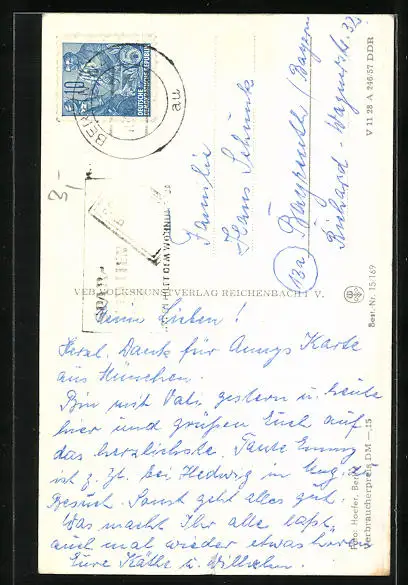 DEUTSCHE
DEMOKRATISCHE REPUBLIK
10
BER
au
3,-
Familie
Hans Schunk
(13a) Bayreuth / Bayern
Richard-Wagnerstr. 32
V 11 28 A 246/57 DDR
VEB VOLKSKUNSTVERLAG REICHENBACH I. V.
Best.-Nr. 15/169
Meine Lieben!
Herzl. Dank für Annys Karte
aus München.
Bin mit Vati gestern u. heute
hier und grüßen Euch auf
das herzlichste. Tante Emmy
ist z. Zt. bei Hedwig in
Besuch. Sonst geht alles gut.
Was macht Ihr alle laßt
auch mal wieder etwas hören
Eure Käthe u. Wilhelm.
Foto: Hoefer, Berlin
Verbraucherpreis DM —,15